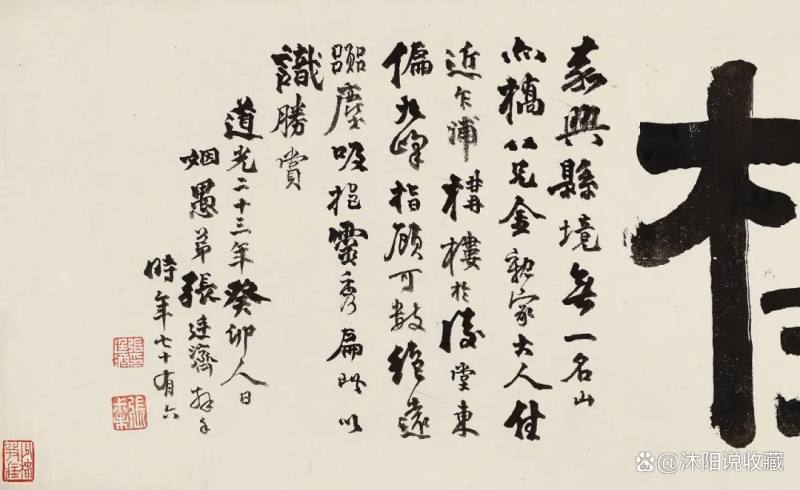 嘉興縣境無一名山
橋八兄金親家大人住
近乍浦構樓於後堂東
偏九峰指顧可數絕遠
塵吸挹靈秀扁此以
識勝賞
道光二十三年癸卯人日
姻愚弟張廷濟拜手
時年七十有六
@沐阳说收藏